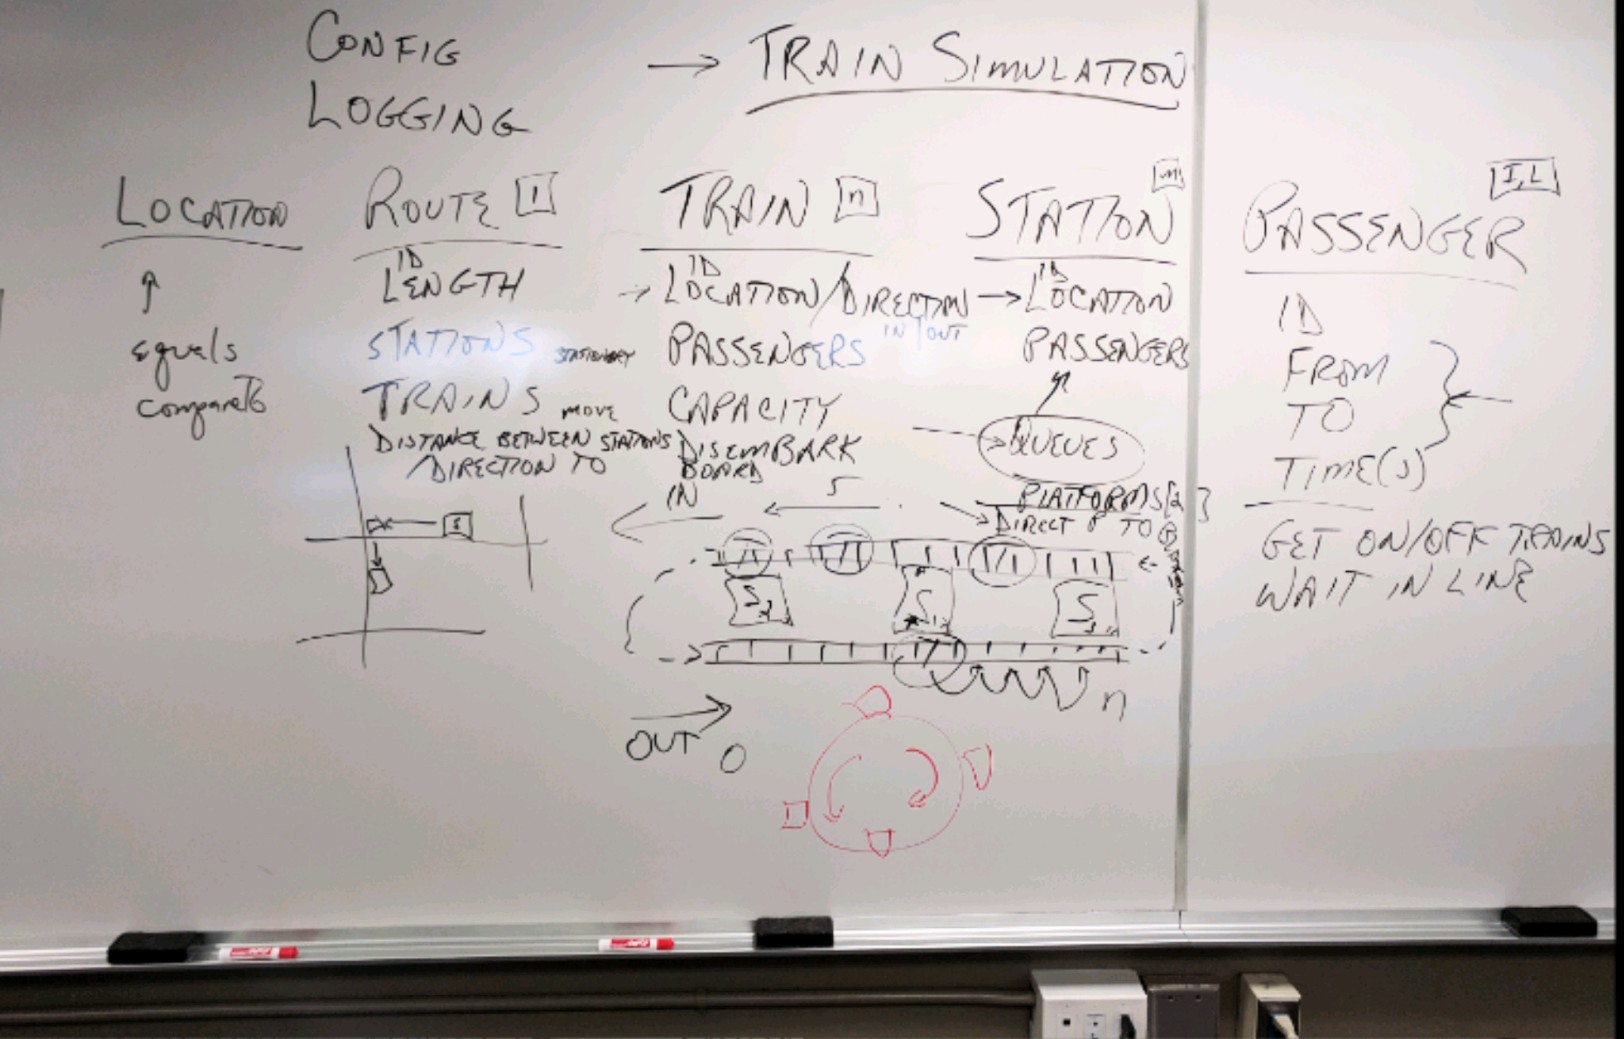 CONFIG
LOGGING
→ TRAIN SIMULATION
LOCATION
↑
equals
compareTo
ROUTE 1
ID
LENGTH
STATIONS STATIONARY
TRAINS MOVE
DISTANCE BETWEEN STATIONS
/DIRECTION TO
TRAIN n
ID
→ LOCATION/DIRECTION
IN/OUT
PASSENGERS
CAPACITY
DISEMBARK
BOARD
STATION m
ID
→ LOCATION
PASSENGERS
QUEUES
PLATFORMS[2]
DIRECT
TO
PASSENGER I,L
ID
FROM
TO
TIME(S)
GET ON/OFF TRAINS
WAIT IN LINE
IN
S
S2
S1
S3
n
OUT
0